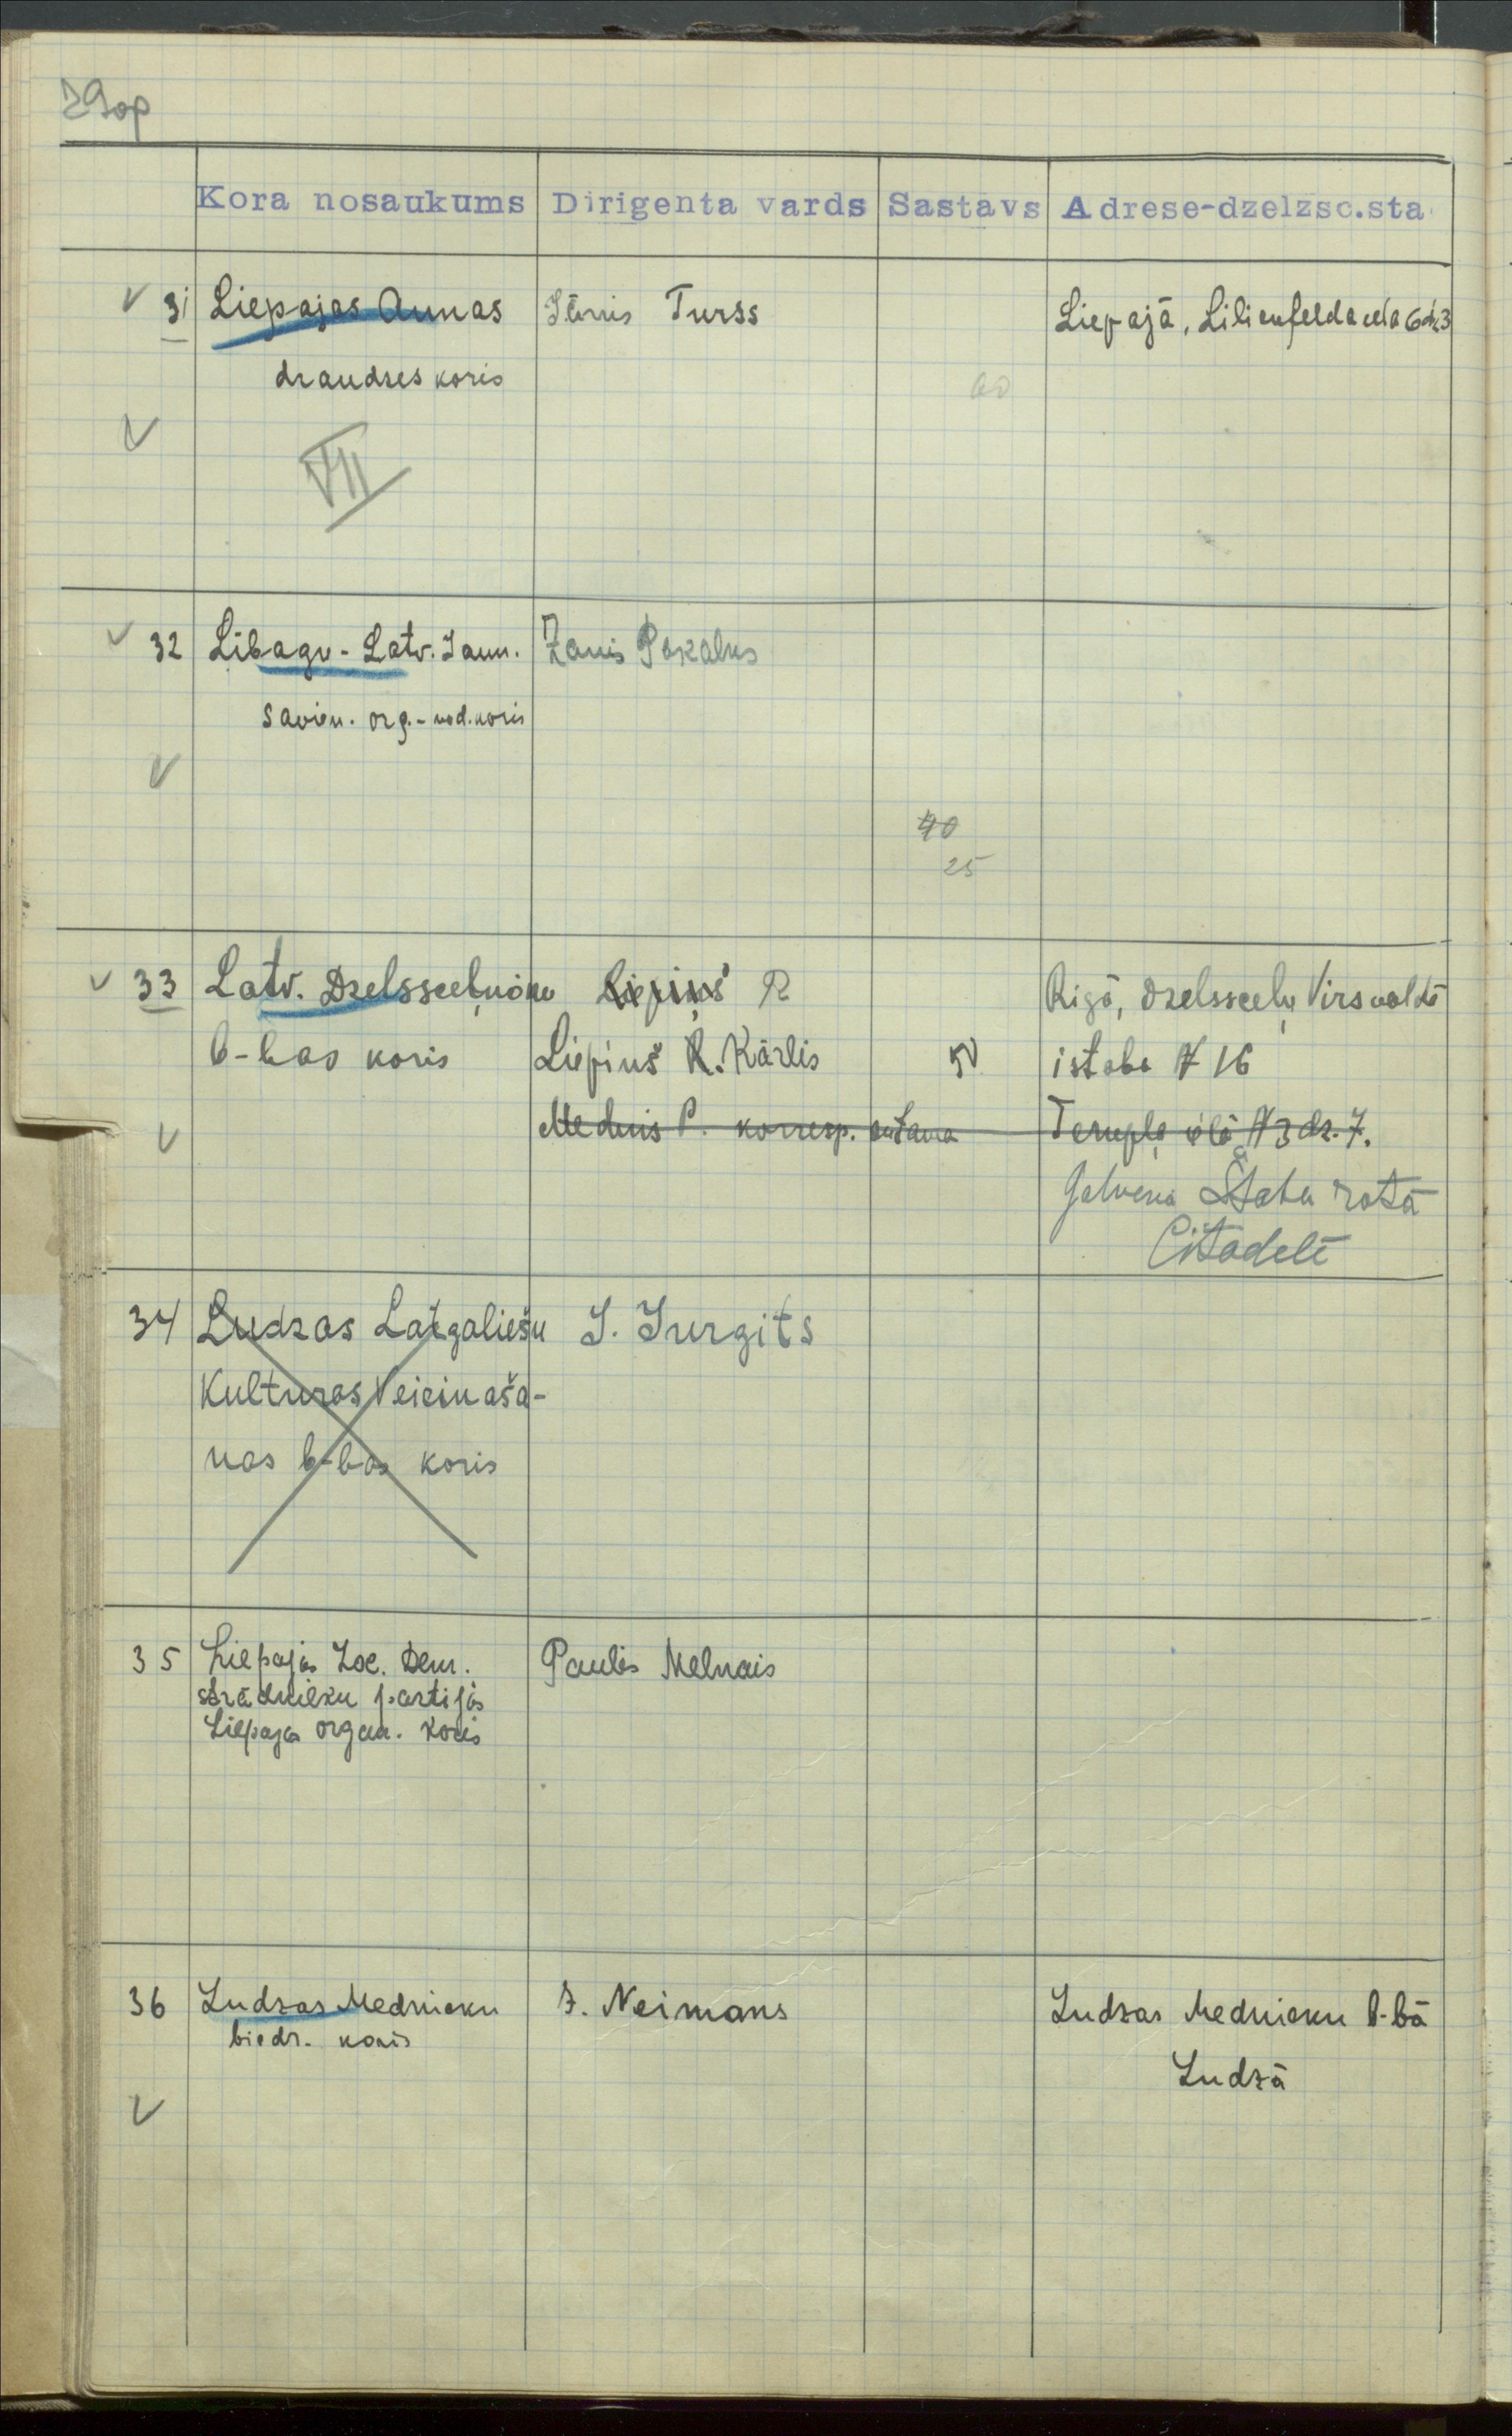 29op
Kora nosaukums Dirigenta vards Sastavs Adrese-dzelzsc.sta
31 Liepajas Annas Jānis Turss Liepajā, Lilienfelda iela 6 dz. 3
draudzes koris 60
VII
32 Lībagu - Latv. Jaun. Žanis Pakalns
savien. org.-nod. koris
40
25
33 Latv. Dzelsseeļnieku Liepiņš R Rīgā, Dzelsseeļu Virsvaldē
b-bas koris Liepiņš R. Kārlis 50 istaba № 16
Mednis P. korresp. Tempļa ielā № 3 dz. 7.
Galvenā Štaba rotā
Citadelē
34 Ludzas Latgaliešu J. Jurgits
Kulturas Veicinaša-
nas b-bas koris
35 Liepajas Soc. Dem. Paulis Melnais
strādnieku partijas
Liepajas organ. koris
36 Ludzas Mednieku J. Neimans Ludzas Mednieku b-bā
biedr. koris
Ludzā